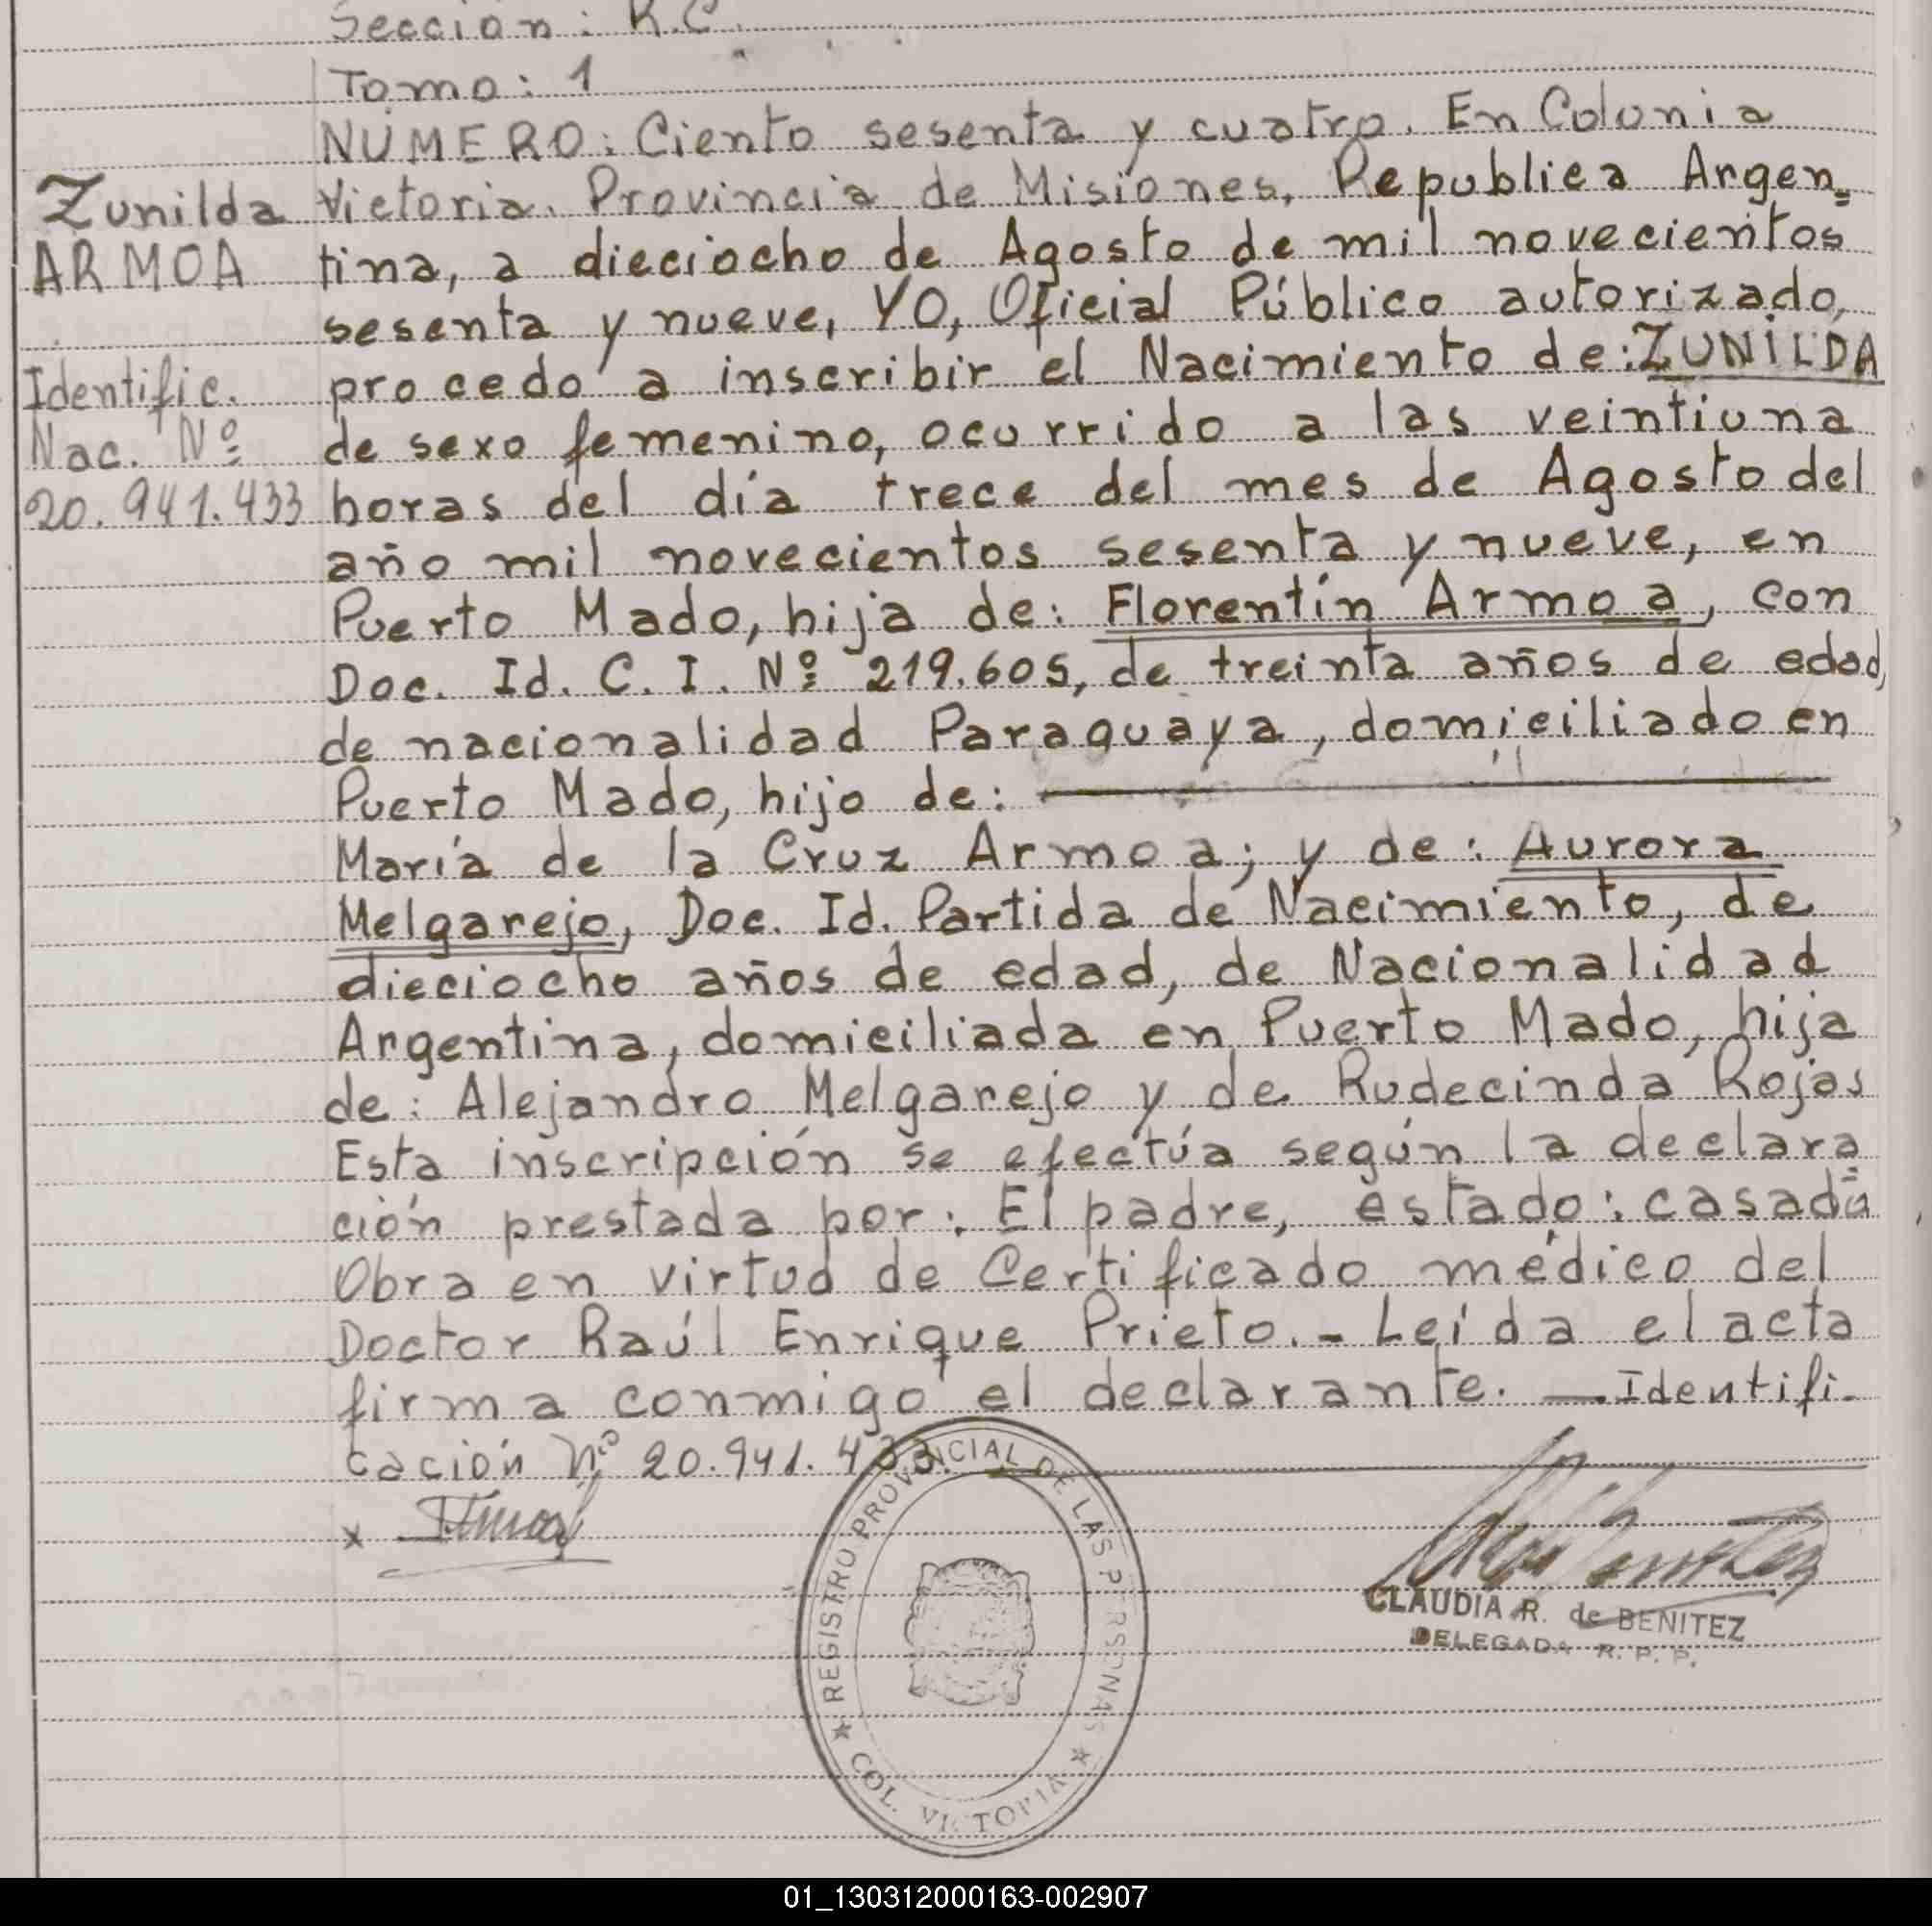 Sección: R.C.
Tomo: 1
NÚMERO: Ciento sesenta y cuatro. En Colonia
Zunilda
ARMOA
Victoria. Provincia de Misiones, Republica Argen=
tina, a dieciocho de Agosto de mil novecientos
sesenta y nueve, YO, Oficial Público autorizado,
Identific.
Nac. Nº
20.941.433
procedo a inscribir el Nacimiento de: ZUNILDA
de sexo femenino, ocurrido a las veintiuna
horas del día trece del mes de Agosto del
año mil novecientos sesenta y nueve, en
Puerto Mado, hija de: Florentín Armoa, con
Doc. Id. C. I. Nº 219.605, de treinta años de edad,
de nacionalidad Paraguaya, domiciliado en
Puerto Mado, hijo de:
María de la Cruz Armoa; y de: Aurora
Melgarejo, Doc. Id. Partida de Nacimiento, de
dieciocho años de edad, de Nacionalidad
Argentina, domiciliada en Puerto Mado, hija
de: Alejandro Melgarejo y de Rudecinda Rojas
Esta inscripción se efectúa según la declara=
ción prestada por: El padre, estado: casado
Obra en virtud de Certificado médico del
Doctor Raúl Enrique Prieto.- Leída el acta
firma conmigo el declarante. — Identifi-
cación Nº 20.941.433.
x
REGISTRO PROVINCIAL DE LAS PERSONAS
★ COL. VICTORIA ★
CLAUDIA R. de BENITEZ
DELEGADA R. P. P.
01_130312000163-002907